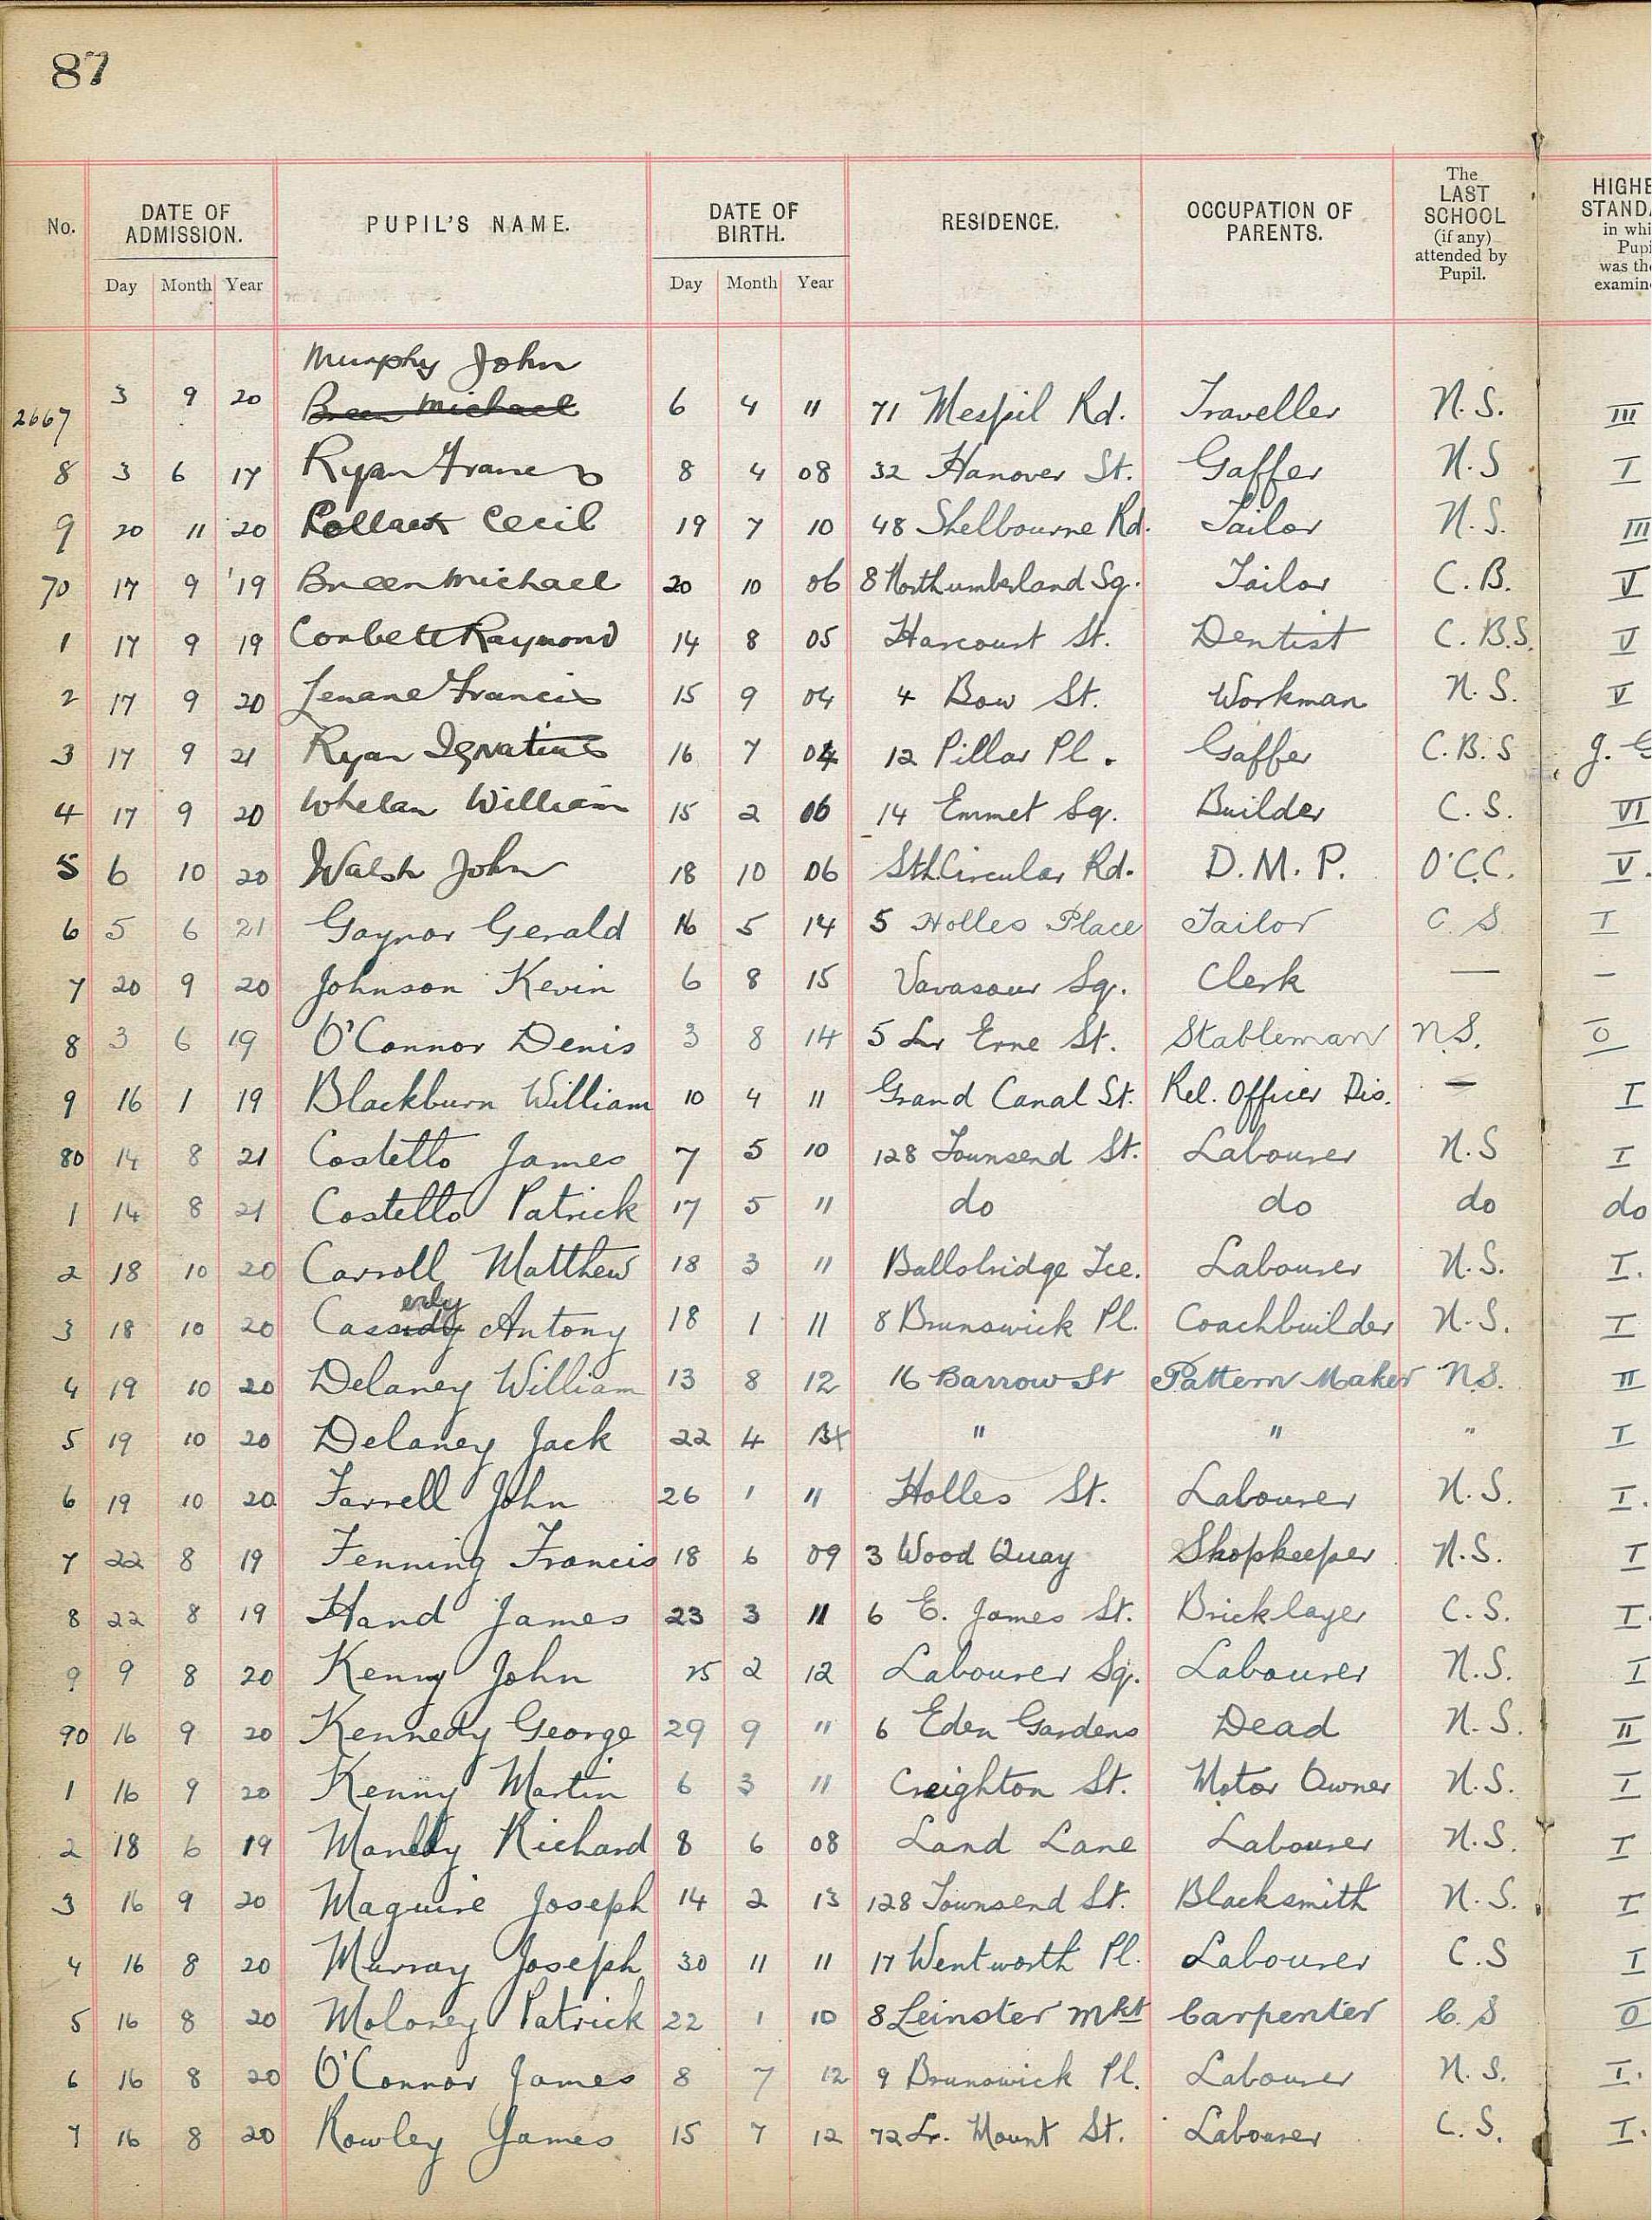 87
No. DATE OF ADMISSION. PUPIL'S NAME. DATE OF BIRTH. RESIDENCE. OCCUPATION OF PARENTS. The LAST SCHOOL (if any) attended by Pupil. HIGHE STANDA in whi Pupi was the examine
Day Month Year Day Month Year
Murphy John
2667 3 9 20 Breen Michael 6 4 11 71 Mespil Rd. Traveller N.S. III
8 3 6 17 Ryan Francis 8 4 08 32 Hanover St. Gaffer N.S I
9 20 11 20 Pollack Cecil 19 7 10 48 Shelbourne Rd. Tailor N.S. III
70 17 9 '19 Breen Michael 20 10 06 8 Northumberland Sq. Tailor C.B. V
1 17 9 19 Corbett Raymond 14 8 05 Harcourt St. Dentist C.B.S. V
2 17 9 20 Lenane Francis 15 9 04 4 Bow St. Workman N.S. V
3 17 9 21 Ryan Ignatius 16 7 04 12 Pillar Pl. Gaffer C.B.S J. G
4 17 9 20 Whelan William 15 2 06 14 Emmet Sq. Builder C.S. VI
5 6 10 20 Walsh John 18 10 06 Sth. Circular Rd. D.M.P. O'C.C. V.
6 5 6 21 Gaynor Gerald 16 5 14 5 Holles Place Tailor C.S. I
7 20 9 20 Johnson Kevin 6 8 15 Vavasour Sq. Clerk — –
8 3 6 19 O'Connor Denis 3 8 14 5 Lr Erne St. Stableman N.S. O
9 16 1 19 Blackburn William 10 4 11 Grand Canal St. Rel. Officer Dis. — I
80 14 8 21 Costello James 7 5 10 128 Townsend St. Labourer N.S I
1 14 8 21 Costello Patrick 17 5 11 do do do do
2 18 10 20 Carroll Matthew 18 3 11 Ballsbridge Tce. Labourer N.S. I.
erly
3 18 10 20 Cassidy Antony 18 1 11 8 Brunswick Pl. Coachbuilder N.S. I
4 19 10 20 Delaney William 13 8 12 16 Barrow St Pattern Maker N.S. II
5 19 10 20 Delaney Jack 22 4 " " " I
6 19 10 20 Farrell John 26 1 11 Holles St. Labourer N.S. I.
7 22 8 19 Fenning Francis 18 6 09 3 Wood Quay Shopkeeper N.S. I
8 22 8 19 Hand James 23 3 11 6 E. James St. Bricklayer C.S. I
9 9 8 20 Kenny John 25 2 12 Labourer Sq. Labourer N.S. I
90 16 9 20 Kennedy George 29 9 11 6 Eden Gardens Dead N.S. II
1 16 9 20 Kenny Martin 6 3 11 Creighton St. Motor Owner N.S. I
2 18 6 19 Richard 8 6 08 Land Lane Labourer N.S. I
3 16 9 20 Maguire Joseph 14 2 13 128 Townsend St. Blacksmith N.S. I
4 16 8 20 Murray Joseph 30 11 11 17 Wentworth Pl. Labourer C.S I
5 16 8 20 Moloney Patrick 22 1 10 8 Leinster Mkt Carpenter C.S O
6 16 8 20 O'Connor James 8 7 12 9 Brunswick Pl. Labourer N.S. I.
7 16 8 20 Rowley James 15 7 12 72 Lr. Mount St. Labourer C.S. I.